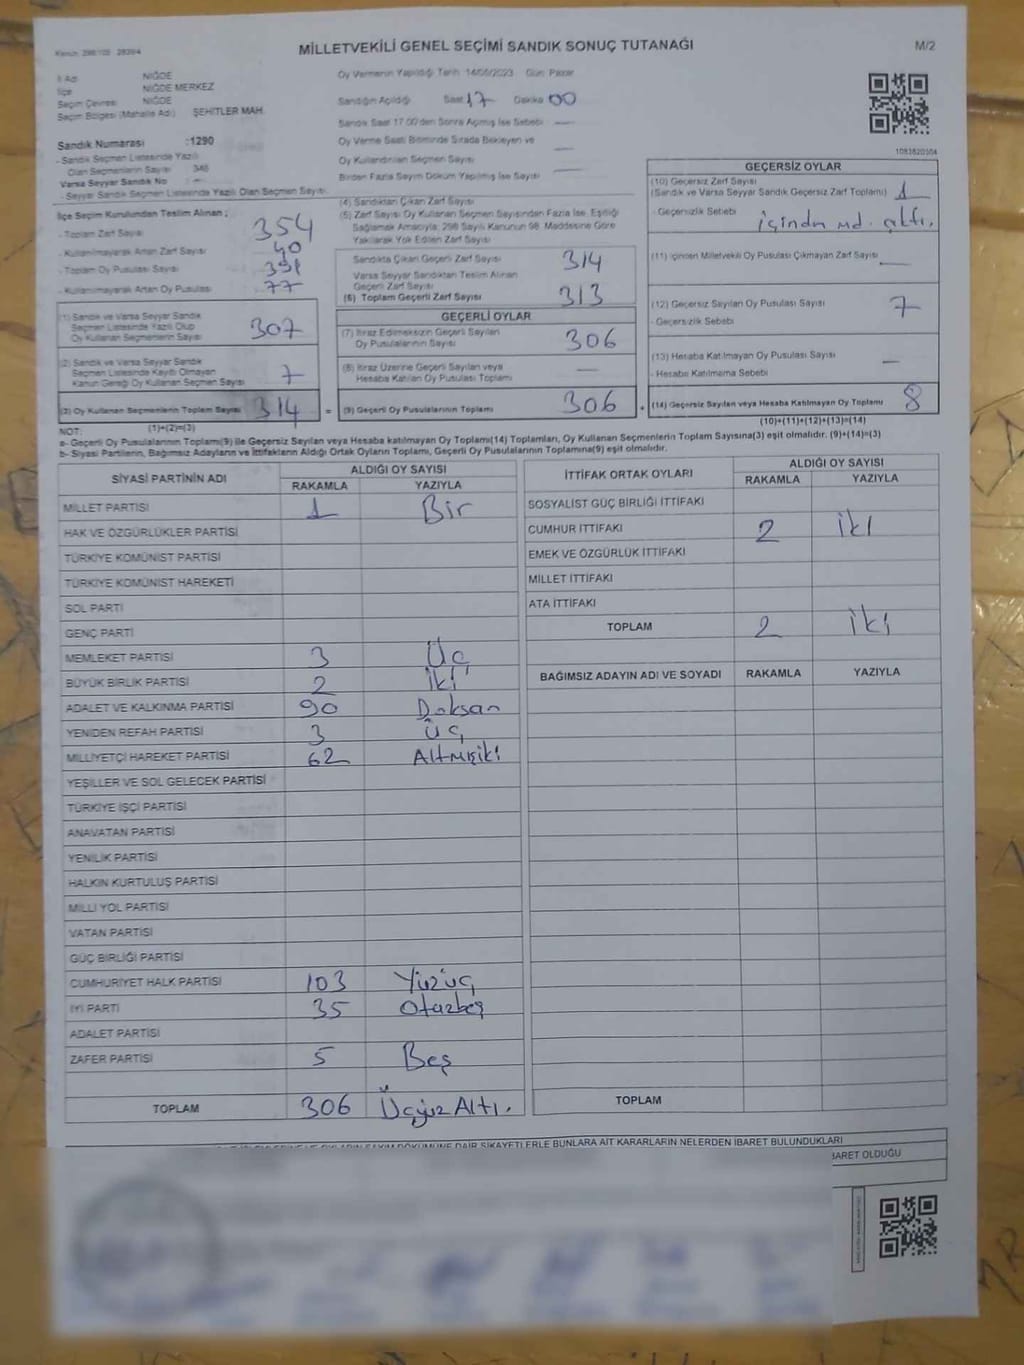 Kanun: 298/105 - 2839/4
MİLLETVEKİLİ GENEL SEÇİMİ SANDIK SONUÇ TUTANAĞI
M/2
İl Adı NİĞDE
İlçe NİĞDE MERKEZ
Seçim Çevresi NİĞDE
Seçim Bölgesi (Mahalle Adı) ŞEHİTLER MAH.
Sandık Numarası :1290
- Sandık Seçmen Listesinde Yazılı
Olan Seçmenlerin Sayısı 346
Varsa Seyyar Sandık No
- Seyyar Sandık Seçmen Listesinde Yazılı Olan Seçmen Sayısı
Oy Vermenin Yapıldığı Tarih: 14/05/2023 Gün: Pazar
Sandığın Açıldığı Saat 17 Dakika 00
Sandık Saat 17.00'den Sonra Açılmış İse Sebebi —
Oy Verme Saati Bitiminde Sırada Bekleyen ve
Oy Kullandırılan Seçmen Sayısı —
Birden Fazla Sayım Döküm Yapılmış İse Sayısı —
1083820504
İlçe Seçim Kurulundan Teslim Alınan ;
- Toplam Zarf Sayısı 354
- Kullanılmayarak Artan Zarf Sayısı 40
- Toplam Oy Pusulası Sayısı 391
- Kullanılmayarak Artan Oy Pusulası 77
(1) Sandık ve Varsa Seyyar Sandık
Seçmen Listesinde Yazılı Olup
Oy Kullanan Seçmenlerin Sayısı 307
(2) Sandık ve Varsa Seyyar Sandık
Seçmen Listesinde Kaydı Olmayan
Kanun Gereği Oy Kullanan Seçmen Sayısı 7
(3) Oy Kullanan Seçmenlerin Toplam Sayısı 314 =
(1)+(2)=(3)
(4) Sandıktan Çıkan Zarf Sayısı
(5) Zarf Sayısı Oy Kullanan Seçmen Sayısından Fazla İse, Eşitliği
Sağlamak Amacıyla, 298 Sayılı Kanunun 98. Maddesine Göre
Yakılarak Yok Edilen Zarf Sayısı
Sandıkta Çıkan Geçerli Zarf Sayısı 314
Varsa Seyyar Sandıktan Teslim Alınan
Geçerli Zarf Sayısı
(6) Toplam Geçerli Zarf Sayısı 313
GEÇERLİ OYLAR
(7) İtiraz Edilmeksizin Geçerli Sayılan
Oy Pusulalarının Sayısı 306
(8) İtiraz Üzerine Geçerli Sayılan veya
Hesaba Katılan Oy Pusulası Toplamı —
(9) Geçerli Oy Pusulalarının Toplamı 306 +
GEÇERSİZ OYLAR
(10) Geçersiz Zarf Sayısı
(Sandık ve Varsa Seyyar Sandık Geçersiz Zarf Toplamı) 1
- Geçersizlik Sebebi içinden md. çıktı.
(11) İçinden Milletvekili Oy Pusulası Çıkmayan Zarf Sayısı —
(12) Geçersiz Sayılan Oy Pusulası Sayısı 7
- Geçersizlik Sebebi
(13) Hesaba Katılmayan Oy Pusulası Sayısı —
- Hesaba Katılmama Sebebi
(14) Geçersiz Sayılan veya Hesaba Katılmayan Oy Toplamı 8
(10)+(11)+(12)+(13)=(14)
NOT:
a- Geçerli Oy Pusulalarının Toplamı(9) ile Geçersiz Sayılan veya Hesaba katılmayan Oy Toplamı(14) Toplamları, Oy Kullanan Seçmenlerin Toplam Sayısına(3) eşit olmalıdır. (9)+(14)=(3)
b- Siyasi Partilerin, Bağımsız Adayların ve İttifakların Aldığı Ortak Oyların Toplamı, Geçerli Oy Pusulalarının Toplamına(9) eşit olmalıdır.
SİYASİ PARTİNİN ADI ALDIĞI OY SAYISI
RAKAMLA YAZIYLA
MİLLET PARTİSİ 1 Bir
HAK VE ÖZGÜRLÜKLER PARTİSİ
TÜRKİYE KOMÜNİST PARTİSİ
TÜRKİYE KOMÜNİST HAREKETİ
SOL PARTİ
GENÇ PARTİ
MEMLEKET PARTİSİ 3 Üç
BÜYÜK BİRLİK PARTİSİ 2 İki
ADALET VE KALKINMA PARTİSİ 90 Doksan
YENİDEN REFAH PARTİSİ 3 Üç
MİLLİYETÇİ HAREKET PARTİSİ 62 Altmışiki
YEŞİLLER VE SOL GELECEK PARTİSİ
TÜRKİYE İŞÇİ PARTİSİ
ANAVATAN PARTİSİ
YENİLİK PARTİSİ
HALKIN KURTULUŞ PARTİSİ
MİLLİ YOL PARTİSİ
VATAN PARTİSİ
GÜÇ BİRLİĞİ PARTİSİ
CUMHURİYET HALK PARTİSİ 103 Yüzüç
İYİ PARTİ 35 Otuzbeş
ADALET PARTİSİ
ZAFER PARTİSİ 5 Beş
TOPLAM 306 Üçyüz Altı.
İTTİFAK ORTAK OYLARI ALDIĞI OY SAYISI
RAKAMLA YAZIYLA
SOSYALİST GÜÇ BİRLİĞİ İTTİFAKI
CUMHUR İTTİFAKI 2 İki
EMEK VE ÖZGÜRLÜK İTTİFAKI
MİLLET İTTİFAKI
ATA İTTİFAKI
TOPLAM 2 İki
BAĞIMSIZ ADAYIN ADI VE SOYADI RAKAMLA YAZIYLA
TOPLAM
DÖKÜMÜNE DAİR ŞİKAYETLERLE BUNLARA AİT KARARLARIN NELERDEN İBARET BULUNDUKLARI
BARET OLDUĞU